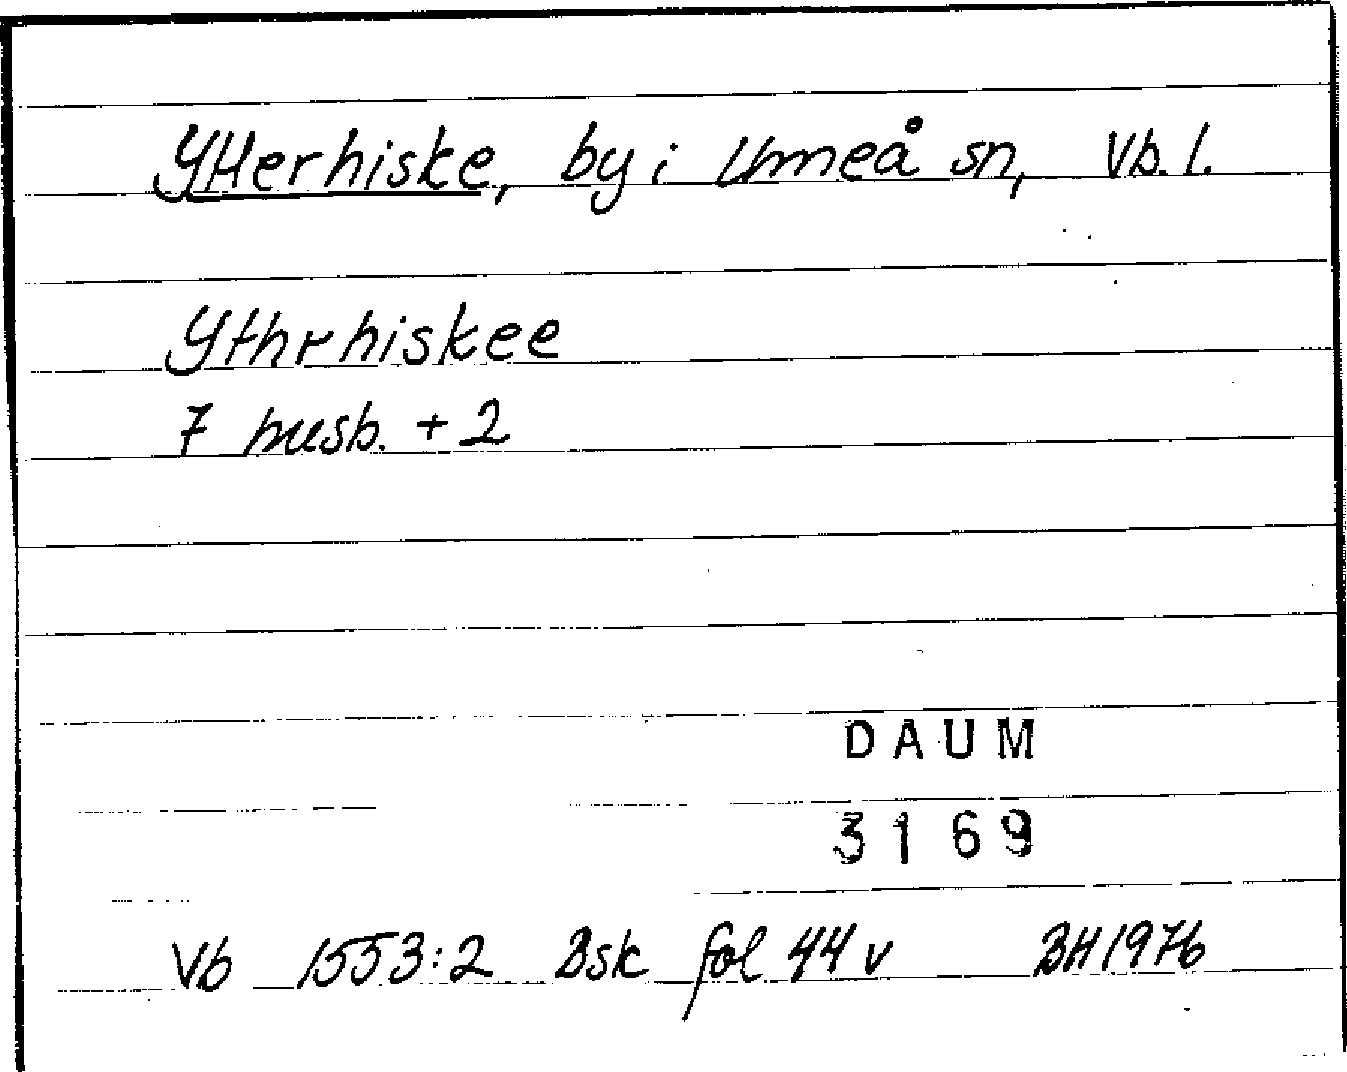 Ytterhiske, by i Umeå sn, Vb. l.
Ythrhiskee
7 husb. + 2
DAUM
3169
Vb 1553:2 Bsk fol 44 v BH 1976